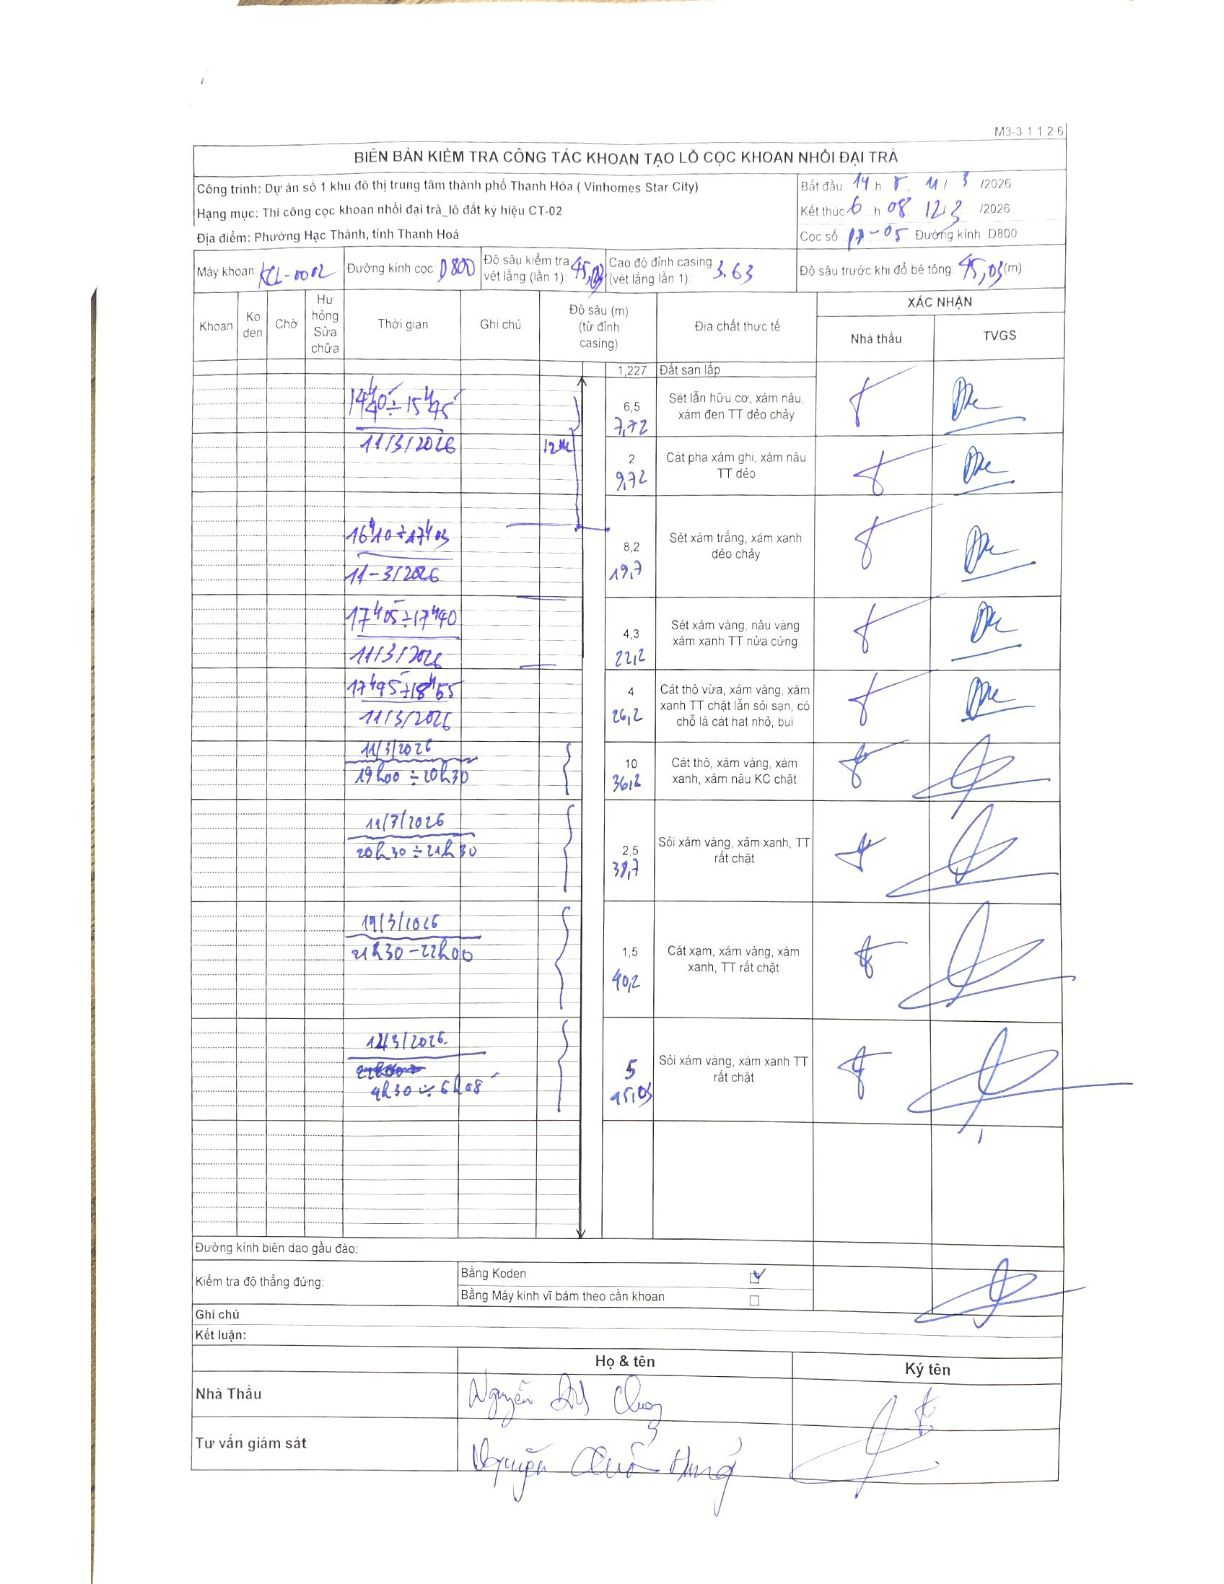 M3-3 1 1 2 6
BIÊN BẢN KIỂM TRA CÔNG TÁC KHOAN TẠO LỖ CỌC KHOAN NHỒI ĐẠI TRÀ
Công trình: Dự án số 1 khu đô thị trung tâm thành phố Thanh Hóa ( Vinhomes Star City)
Bắt đầu 14 h 5 11 / 3 /2026
Hạng mục: Thi công cọc khoan nhồi đại trà_lô đất ký hiệu CT-02
Kết thúc 6 h 08 12/3 /2026
Địa điểm: Phường Hạc Thành, tỉnh Thanh Hoá
Cọc số 17-05 Đường kính D800
Máy khoan: KCL-0002
Đường kính cọc D800
Độ sâu kiểm tra vét lắng (lần 1): 45,03
Cao độ đỉnh casing (vét lắng lần 1): 3.63
Độ sâu trước khi đổ bê tông: 45,03 (m)
Khoan
Ko den
Chờ
Hư hỏng Sửa chữa
Thời gian
Ghi chú
Độ sâu (m) (từ đỉnh casing)
Địa chất thực tế
XÁC NHẬN
Nhà thầu
TVGS
1,227 Đất san lấp
14h40÷15h45
11/3/2026
6,5
7,72
Sét lẫn hữu cơ, xám nâu, xám đen TT dẻo chảy
12m
2
9,72
Cát pha xám ghi, xám nâu TT dẻo
16h10÷17h03
11-3/2026
8,2
19,7
Sét xám trắng, xám xanh dẻo chảy
17h05÷17h40
11/3/2026
4,3
22,2
Sét xám vàng, nâu vàng xám xanh TT nửa cứng
17h45÷18h55
11/3/2026
4
26,2
Cát thô vừa, xám vàng, xám xanh TT chặt lẫn sỏi sạn, có chỗ là cát hạt nhỏ, bụi
11/3/2026
19h00 ÷ 20h30
10
36,2
Cát thô, xám vàng, xám xanh, xám nâu KC chặt
11/3/2026
20h30 ÷ 21h30
2,5
38,7
Sỏi xám vàng, xám xanh, TT rất chặt
11/3/2026
21h30 - 22h00
1,5
40,2
Cát xạm, xám vàng, xám xanh, TT rất chặt
12/3/2026
4h30 ÷ 6h08
5
45,03
Sỏi xám vàng, xám xanh TT rất chặt
Đường kính biên dao gầu đào:
Kiểm tra độ thẳng đứng:
Bằng Koden
Bằng Máy kinh vĩ bám theo cần khoan
Ghi chú
Kết luận:
Họ & tên
Ký tên
Nhà Thầu
Nguyễn
Tư vấn giám sát
Nguyễn